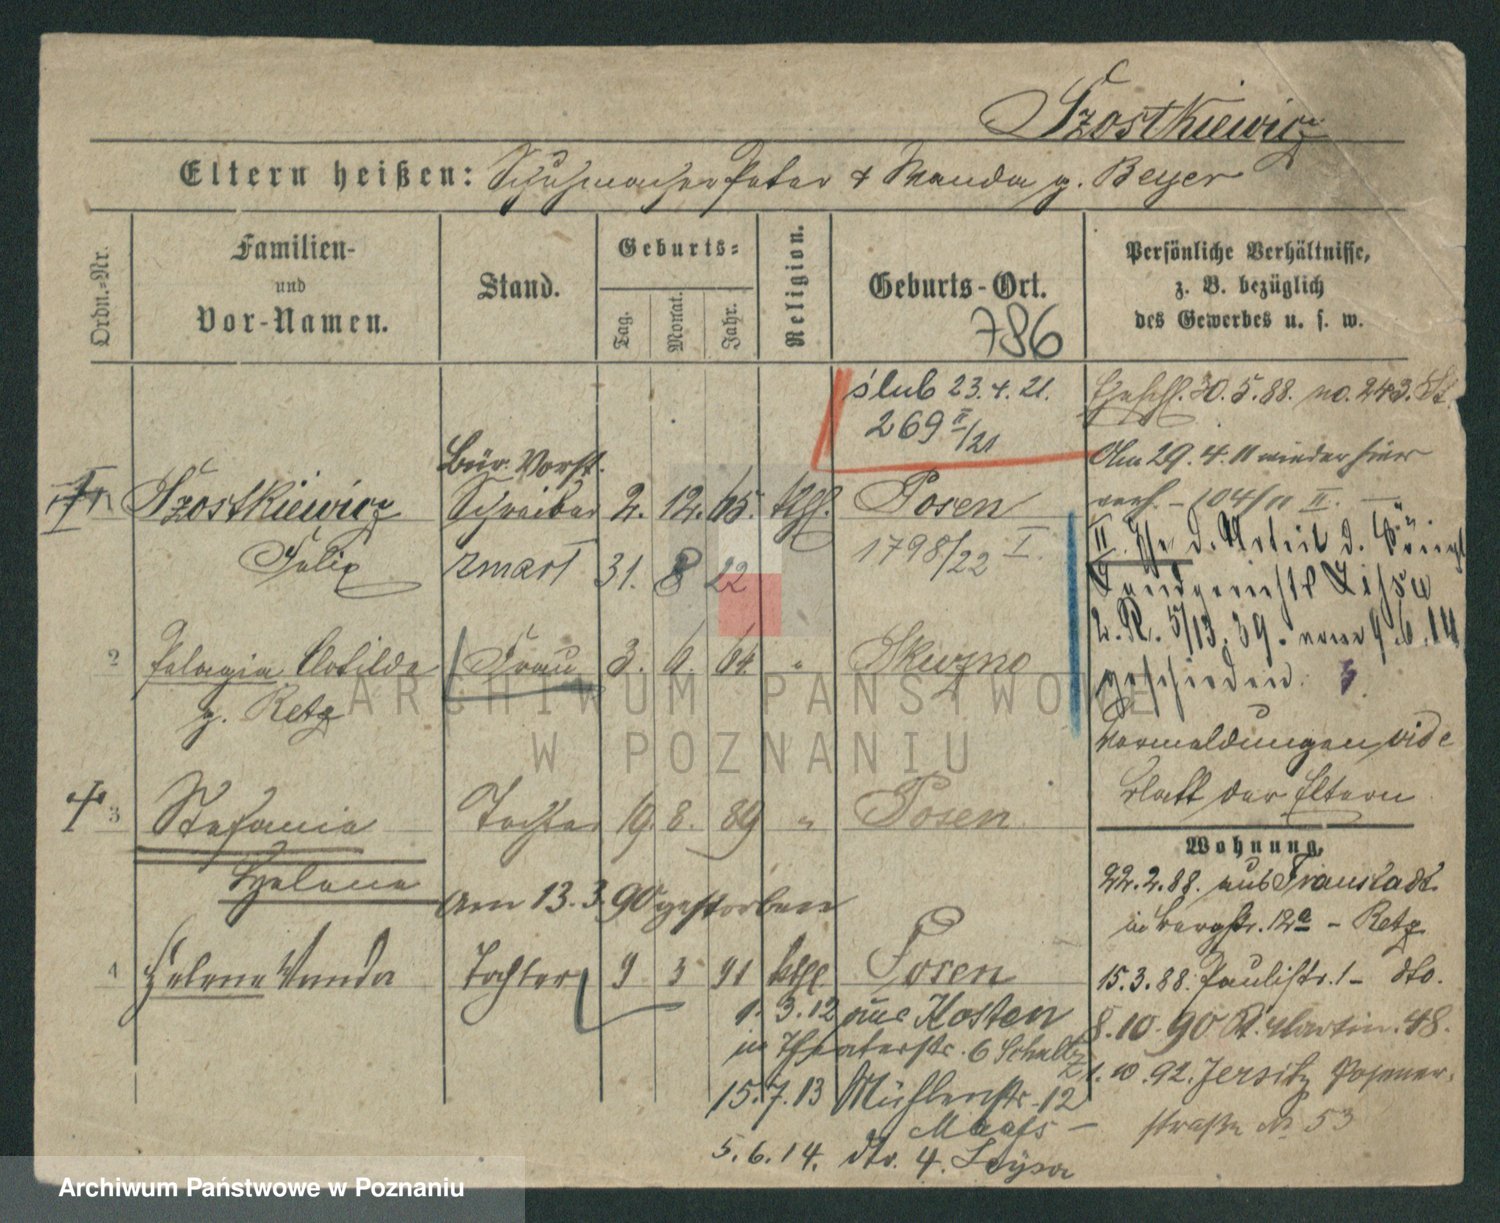 Szostkiewicz
Eltern heißen: Schuhmacher Peter & Wanda g. Beyer
Ordn.-Nr.
Familien-
und
Vor-Namen.
Stand.
Geburts-
Tag.
Monat.
Jahr.
Religion.
Geburts-Ort.
786
Persönliche Verhältnisse,
z. B. bezüglich
des Gewerbes u. s. w.
ślub 23.4.21.
269 II/21
Ehschl. 30.5.88. no. 243.
Am 29.4.11 wieder hier
verh. - 104/11 II. -
Bür. Vorst.
Szostkiewicz Schreiber 2. 12. 65. kth. Posen
Felix zmarł 31. 8 22 1798/22 I.
II. Ehe d. Urteil d. Königl
Landgerichts Lissa
2. R. 5/13. 39. vom 9.6.14
geschieden.
2 Pelagia Clotilde Frau 3. 6. 64. "
g. Retz
Vormeldungen vide
Blatt der Eltern
3 Stefania Tochter 19. 8. 89 " Posen
Helena
am 13.3.90 gestorben
4 Helena Wanda Tochter 9 3 91 kth Posen
1. 3.12 aus Kosten
in Theaterstr. 6 Schultz
15.7.13 Mühlenstr. 12
Maafs -
5.6.14. dto. 4.
Wohnung.
22.2.88. aus Fraustadt
in Bergstr. 12a - Retz
15.3.88. Paulistr. 1 - dto.
8.10.90 St. Martin. 48.
1.10.92. Jersitz Posener-
straße № 53
ARCHIWUM PAŃSTWOWE
W POZNANIU
Archiwum Państwowe w Poznaniu